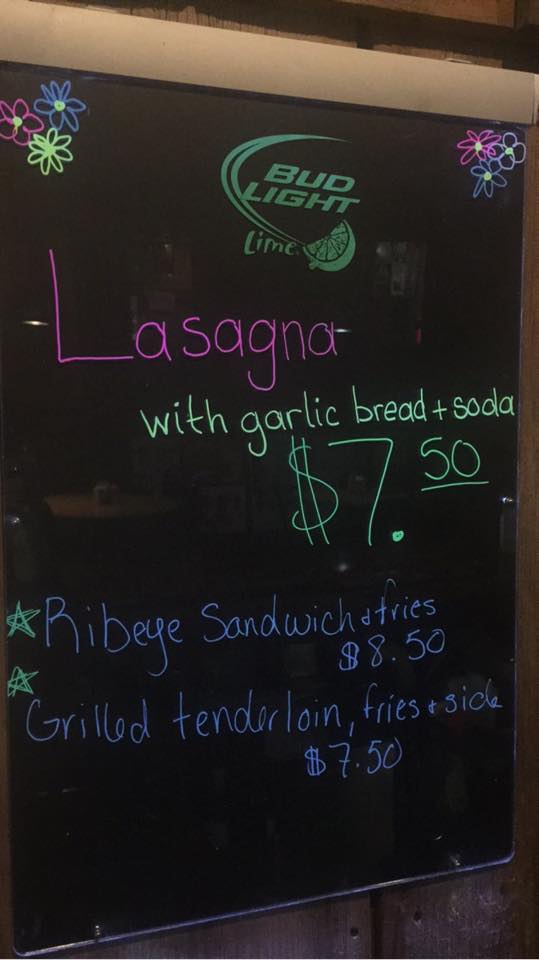 BUD
LIGHT
Lime
Lasagna
with garlic bread + soda
$7.50
Ribeye Sandwich & fries
$8.50
Grilled tenderloin, fries + side
$7.50